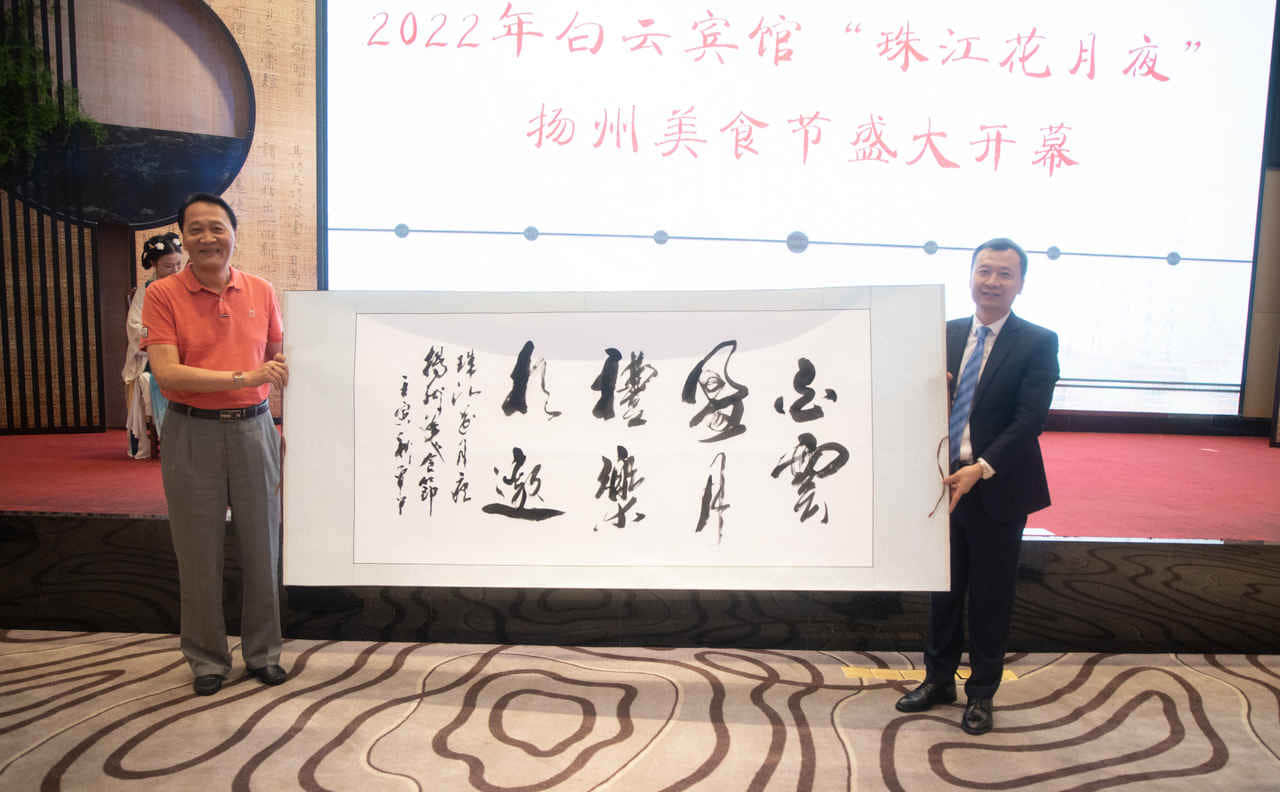 2022年白云宾馆 “珠江花月夜”
扬州美食节盛大开幕
白雲
盈月
禮樂
相邀
珠江花月夜
揚州美食節
壬寅秋